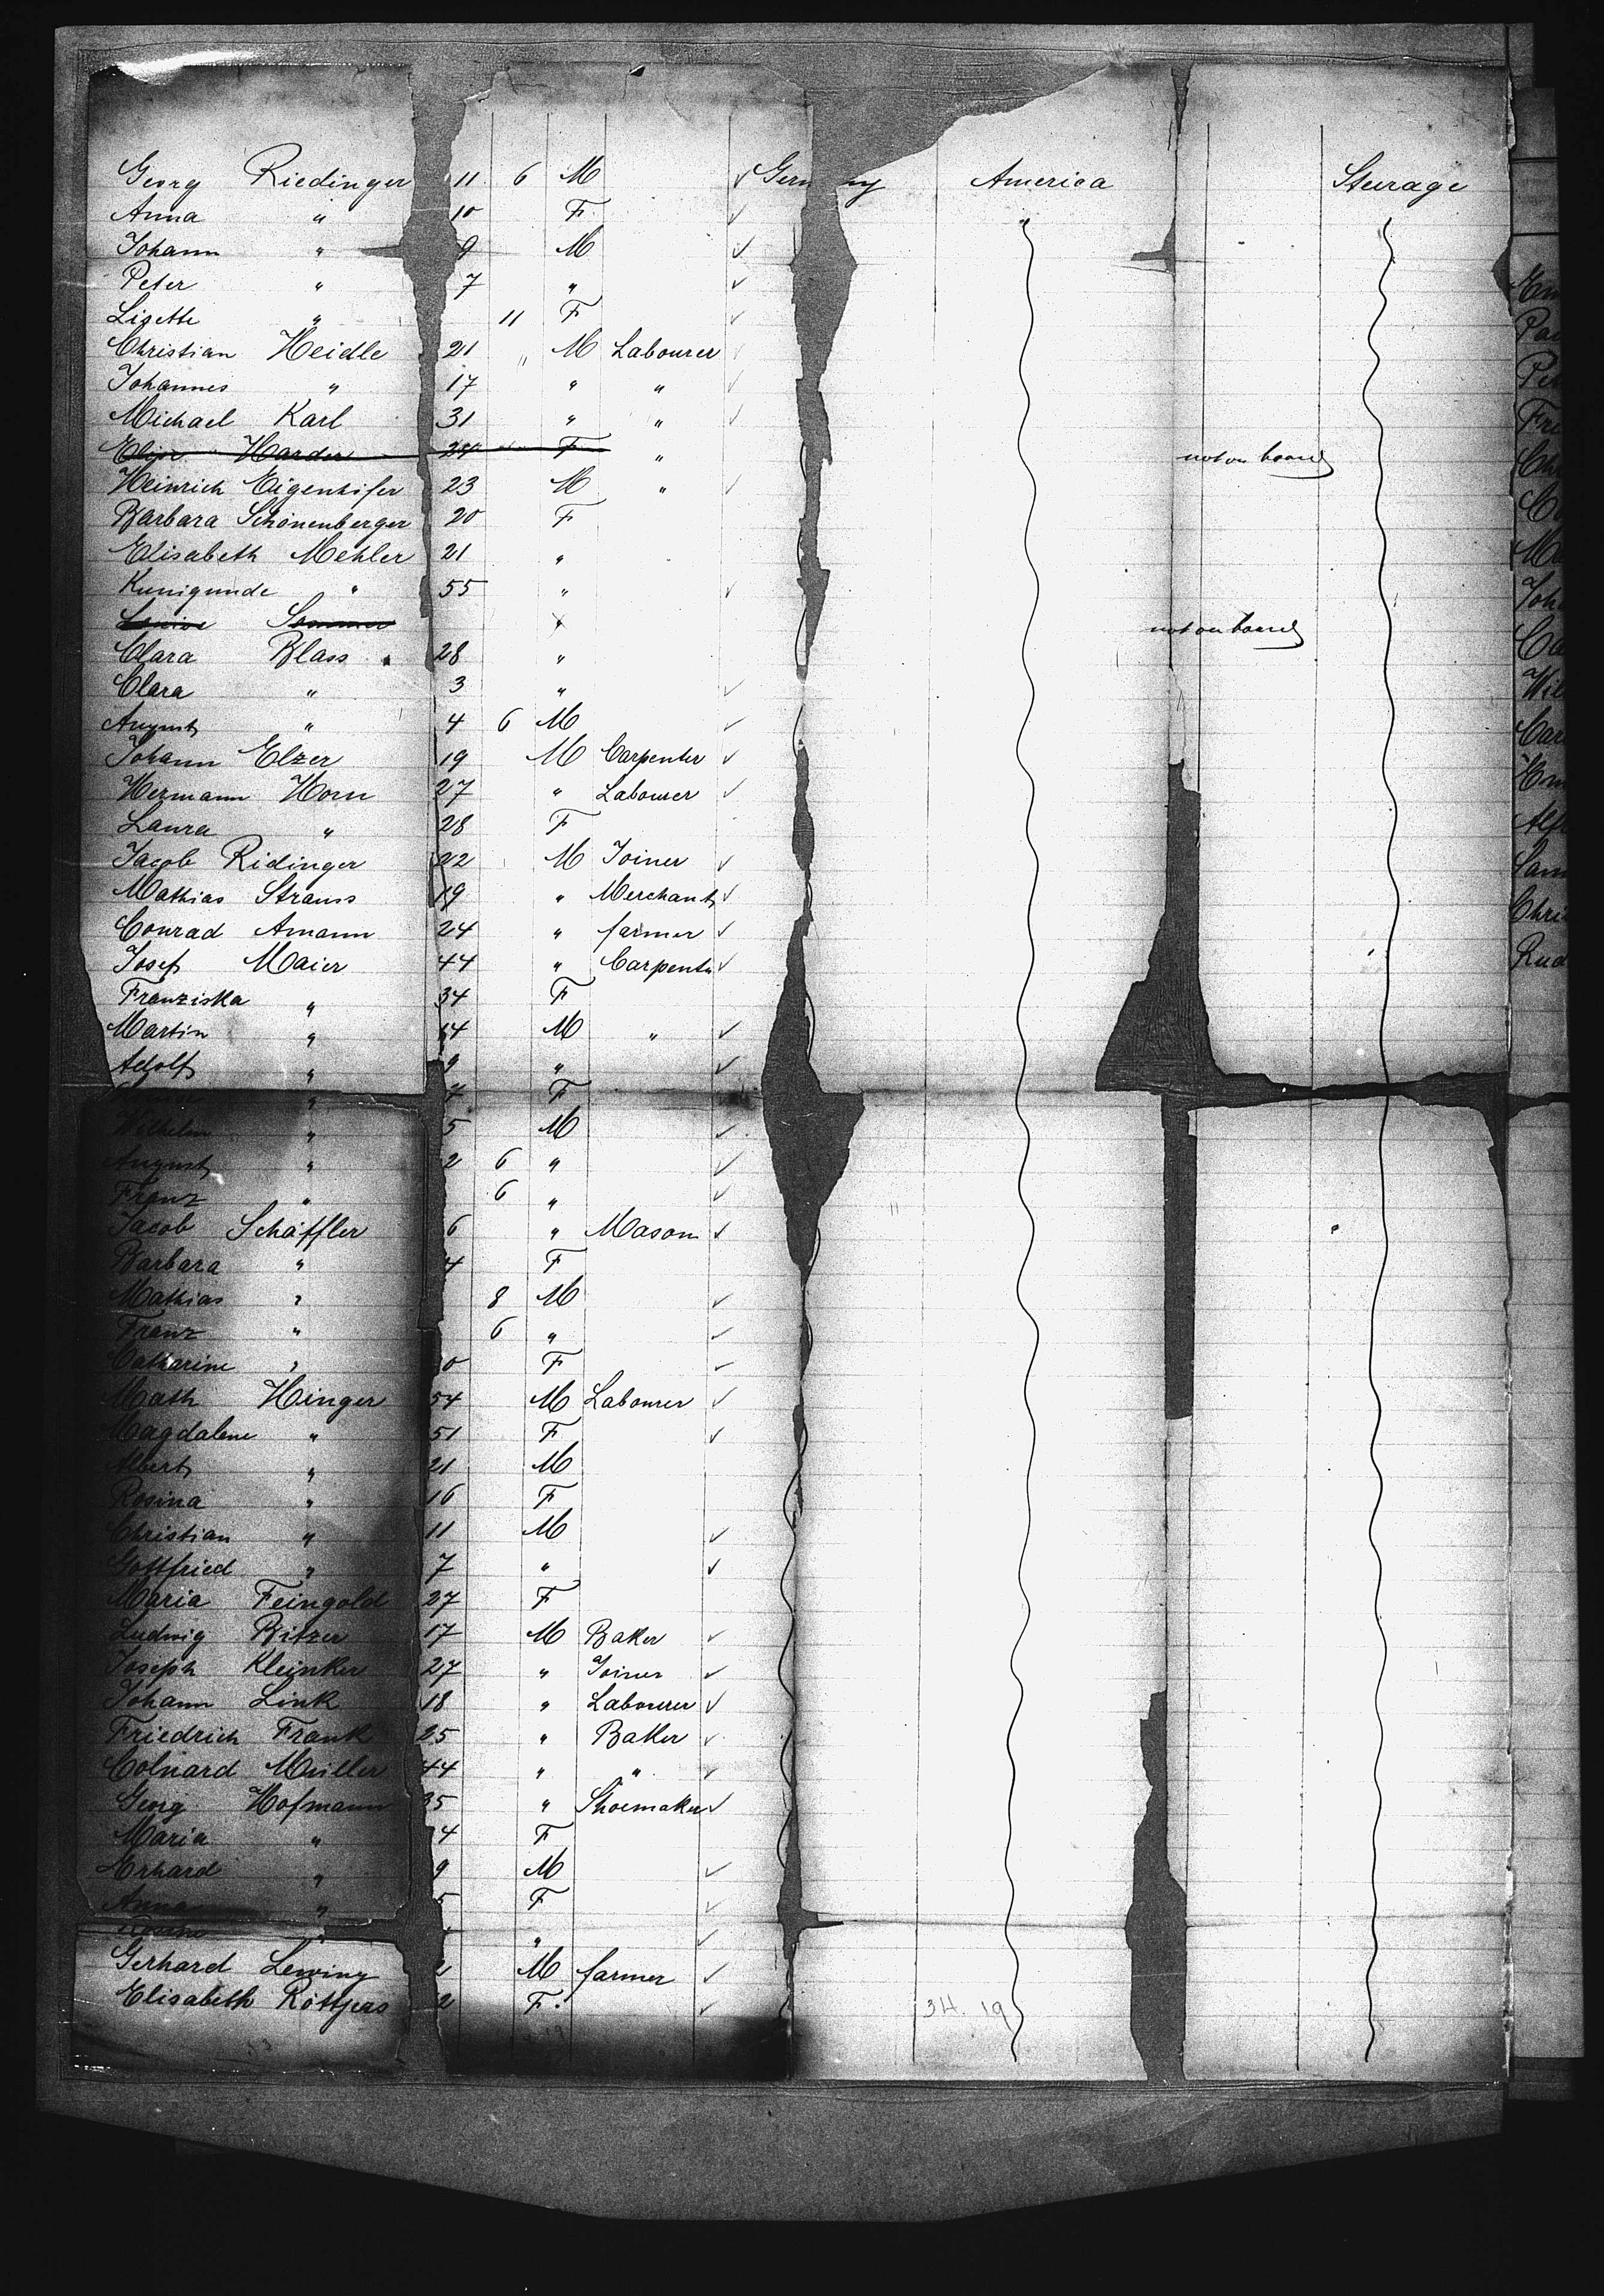 Georg Riedinger 11 6 M ✓ Germ ny America Steerage
Anna " 10 F ✓ "
Johann " 9 M ✓
Peter " 7 " ✓
Lisette " 11 F ✓
Christian Heidle 21 " M Labourer ✓
Johannes " 17 " " ✓
Michael Karl 31 " " ✓
Harder 24 F " not on board
Heinrich Eigenhifer 23 M " ✓
Barbara Schönenberger 20 F
Elisabeth Mehler 21 "
Kunigunde " 55 " ✓
Louise Sommer not on board
Clara Blass 28 "
Clara " 3 " ✓
August " 4 6 M ✓
Johann Elzer 19 M Carpenter ✓
Hermann Horn 27 " Labourer ✓
Laura " 28 F
Jacob Ridinger 22 M Joiner ✓
Mathias Strauss 19 " Merchant ✓
Conrad Amann 24 " farmer ✓
Josef Maier 44 " Carpenter ✓
Franziska " 34 F
Martin " 14 M " ✓
Adolf " 9 " ✓
" 7 F
Wilhelm " 5 M ✓
August " 2 6 " ✓
Franz " 6 " ✓
Jacob Schäffler 6 " Mason ✓
Barbara " 4 F
Mathias " 8 M ✓
Franz " 6 " ✓
Catharine " 0 F ✓
Math Hinger 54 M Labourer ✓
Magdalene " 51 F ✓
Albert " 21 M
Rosina " 16 F
Christian " 11 M ✓
Gottfried " 7 " ✓
Maria Feingold 27 F
Ludwig Bitzer 17 M Baker ✓
Joseph Kleinker 27 " Joiner ✓
Johann Link 18 " Labourer ✓
Friedrich Frank 25 " Baker ✓
Colnard Müller 44 " " ✓
Georg Hofmann 35 " Shoemaker ✓
Maria " 4 F
Erhard " 9 M ✓
Anna " 5 F ✓
" " ✓
Gerhard Lewing 2 M farmer ✓
Elisabeth Röttjers 2 F ✓
34. 19
53